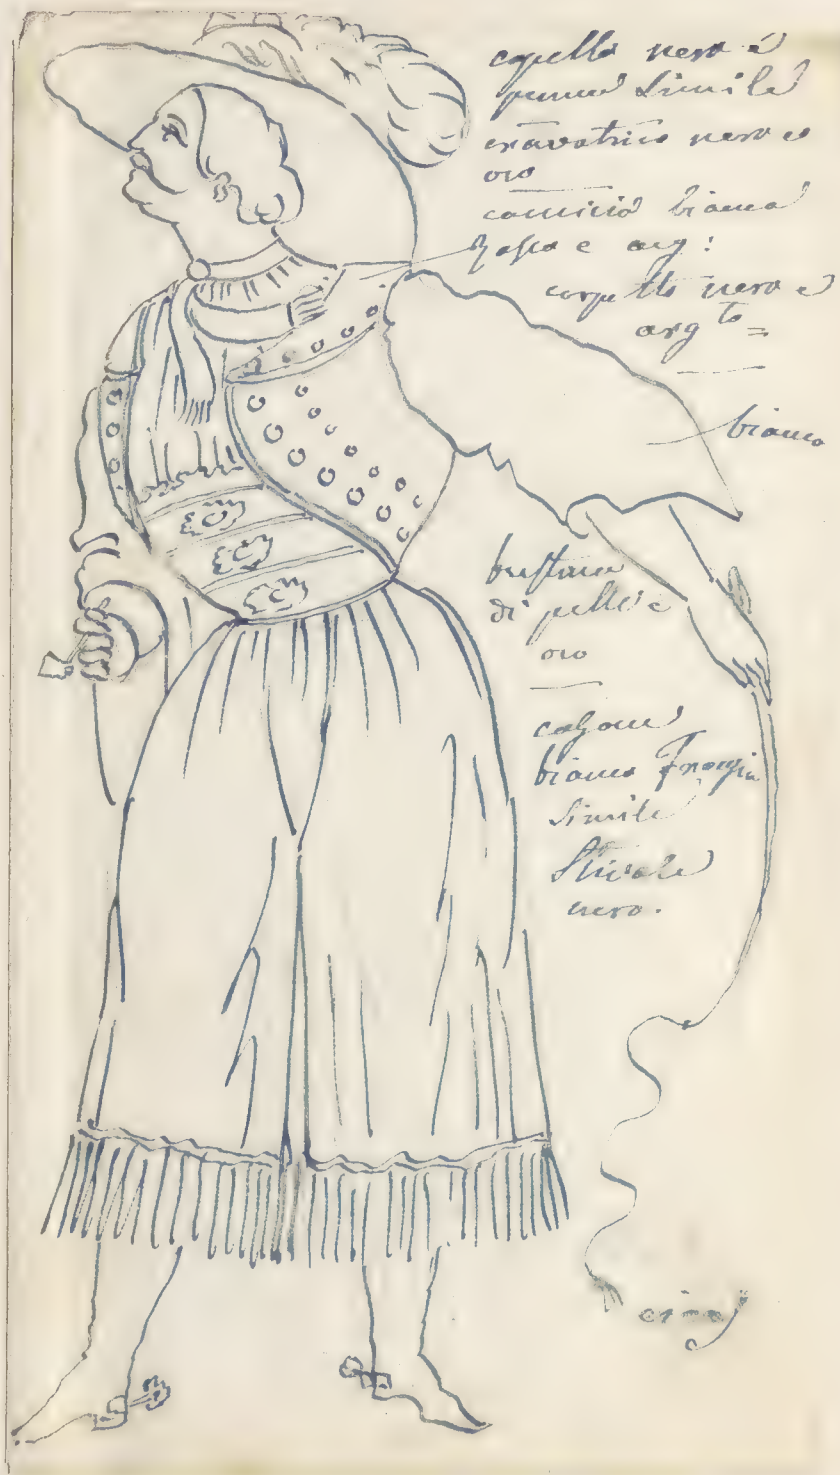 capello nero e
piume simile
cravatino nero e
oro
camicia bianca
e arg:
corpetto nero e
arg to =
bianco
di pelle e
oro
calzone
bianco Frangia
simile
Stivale
nero.